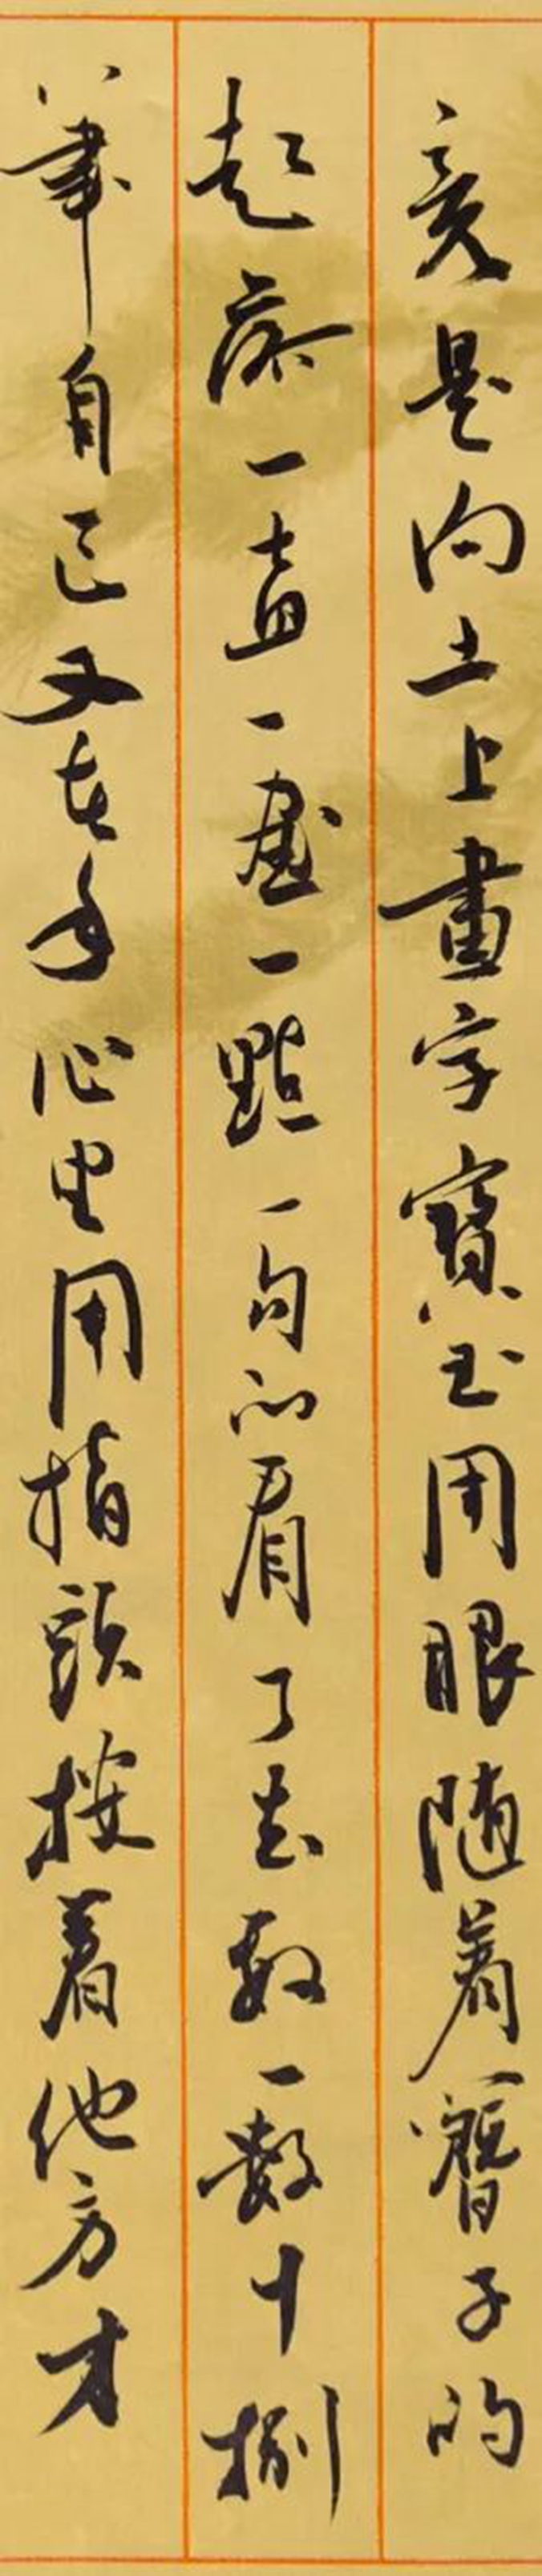 竟是向土上畫字寶玉用眼随着簪子的
起落一直一畫一點一勾的看了去數一數十捌
筆自己又在手心里用指頭按着他方才